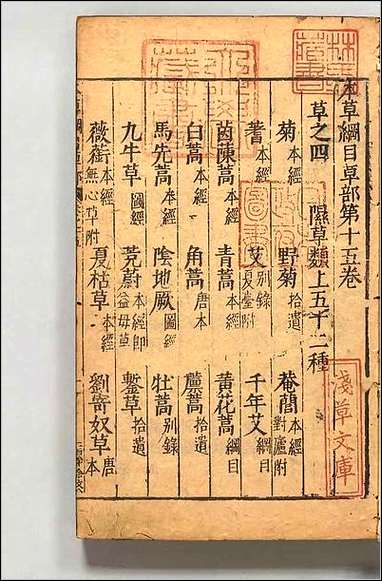 本草綱目草部第十五卷
草之四 隰草類上五十二種
菊本經 野菊拾遺 菴䕡本經對廬附
蓍本經 艾別錄夏臺附 千年艾綱目
茵蔯蒿本經 青蒿本經 黃花蒿綱目
白蒿本經 角蒿唐本 藘蒿拾遺
馬先蒿本經 陰地厥圖經 牡蒿別錄
九牛草圖經 茺蔚本經即益母草 鏨草拾遺
薇蘅本經無心草附 夏枯草本經 劉寄奴草唐本
淺草文庫